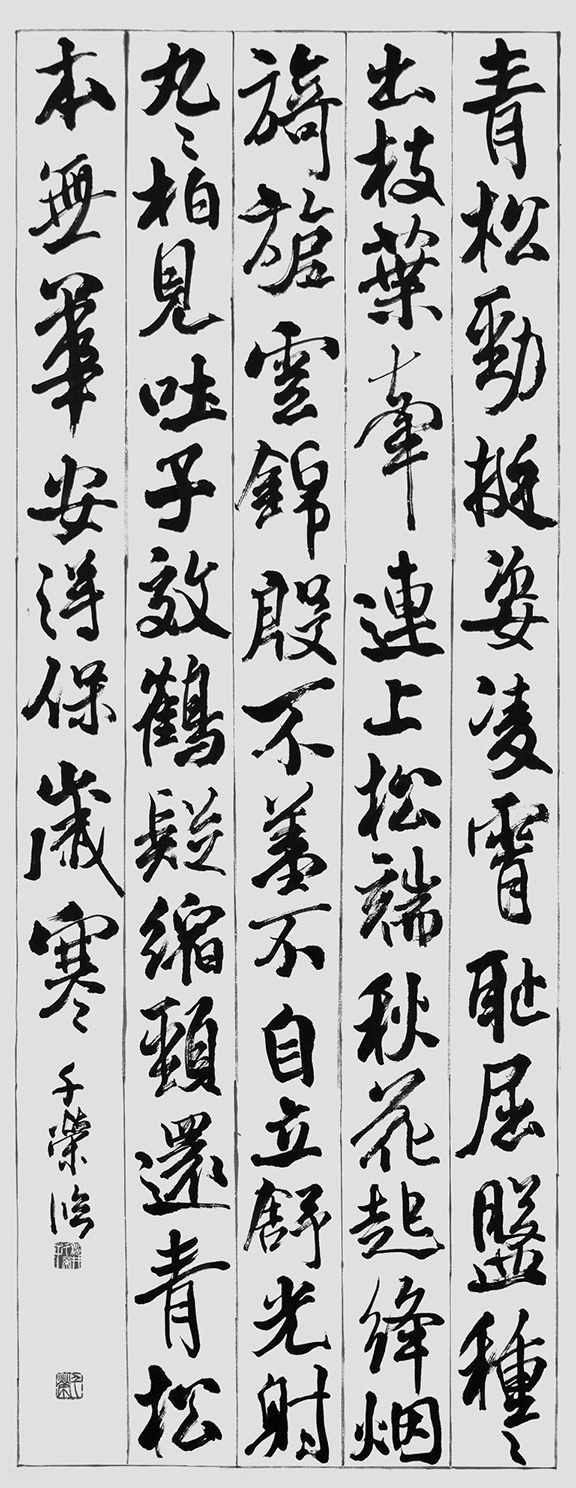 青松勁挺姿凌霄耻屈盤種〻
出枝葉牽連上松端秋花起絳烟
旖旎雲錦殷不羞不自立舒光射
丸〻柏見吐子效鶴疑縮頸還青松
本無華安得保歲寒
榮臨